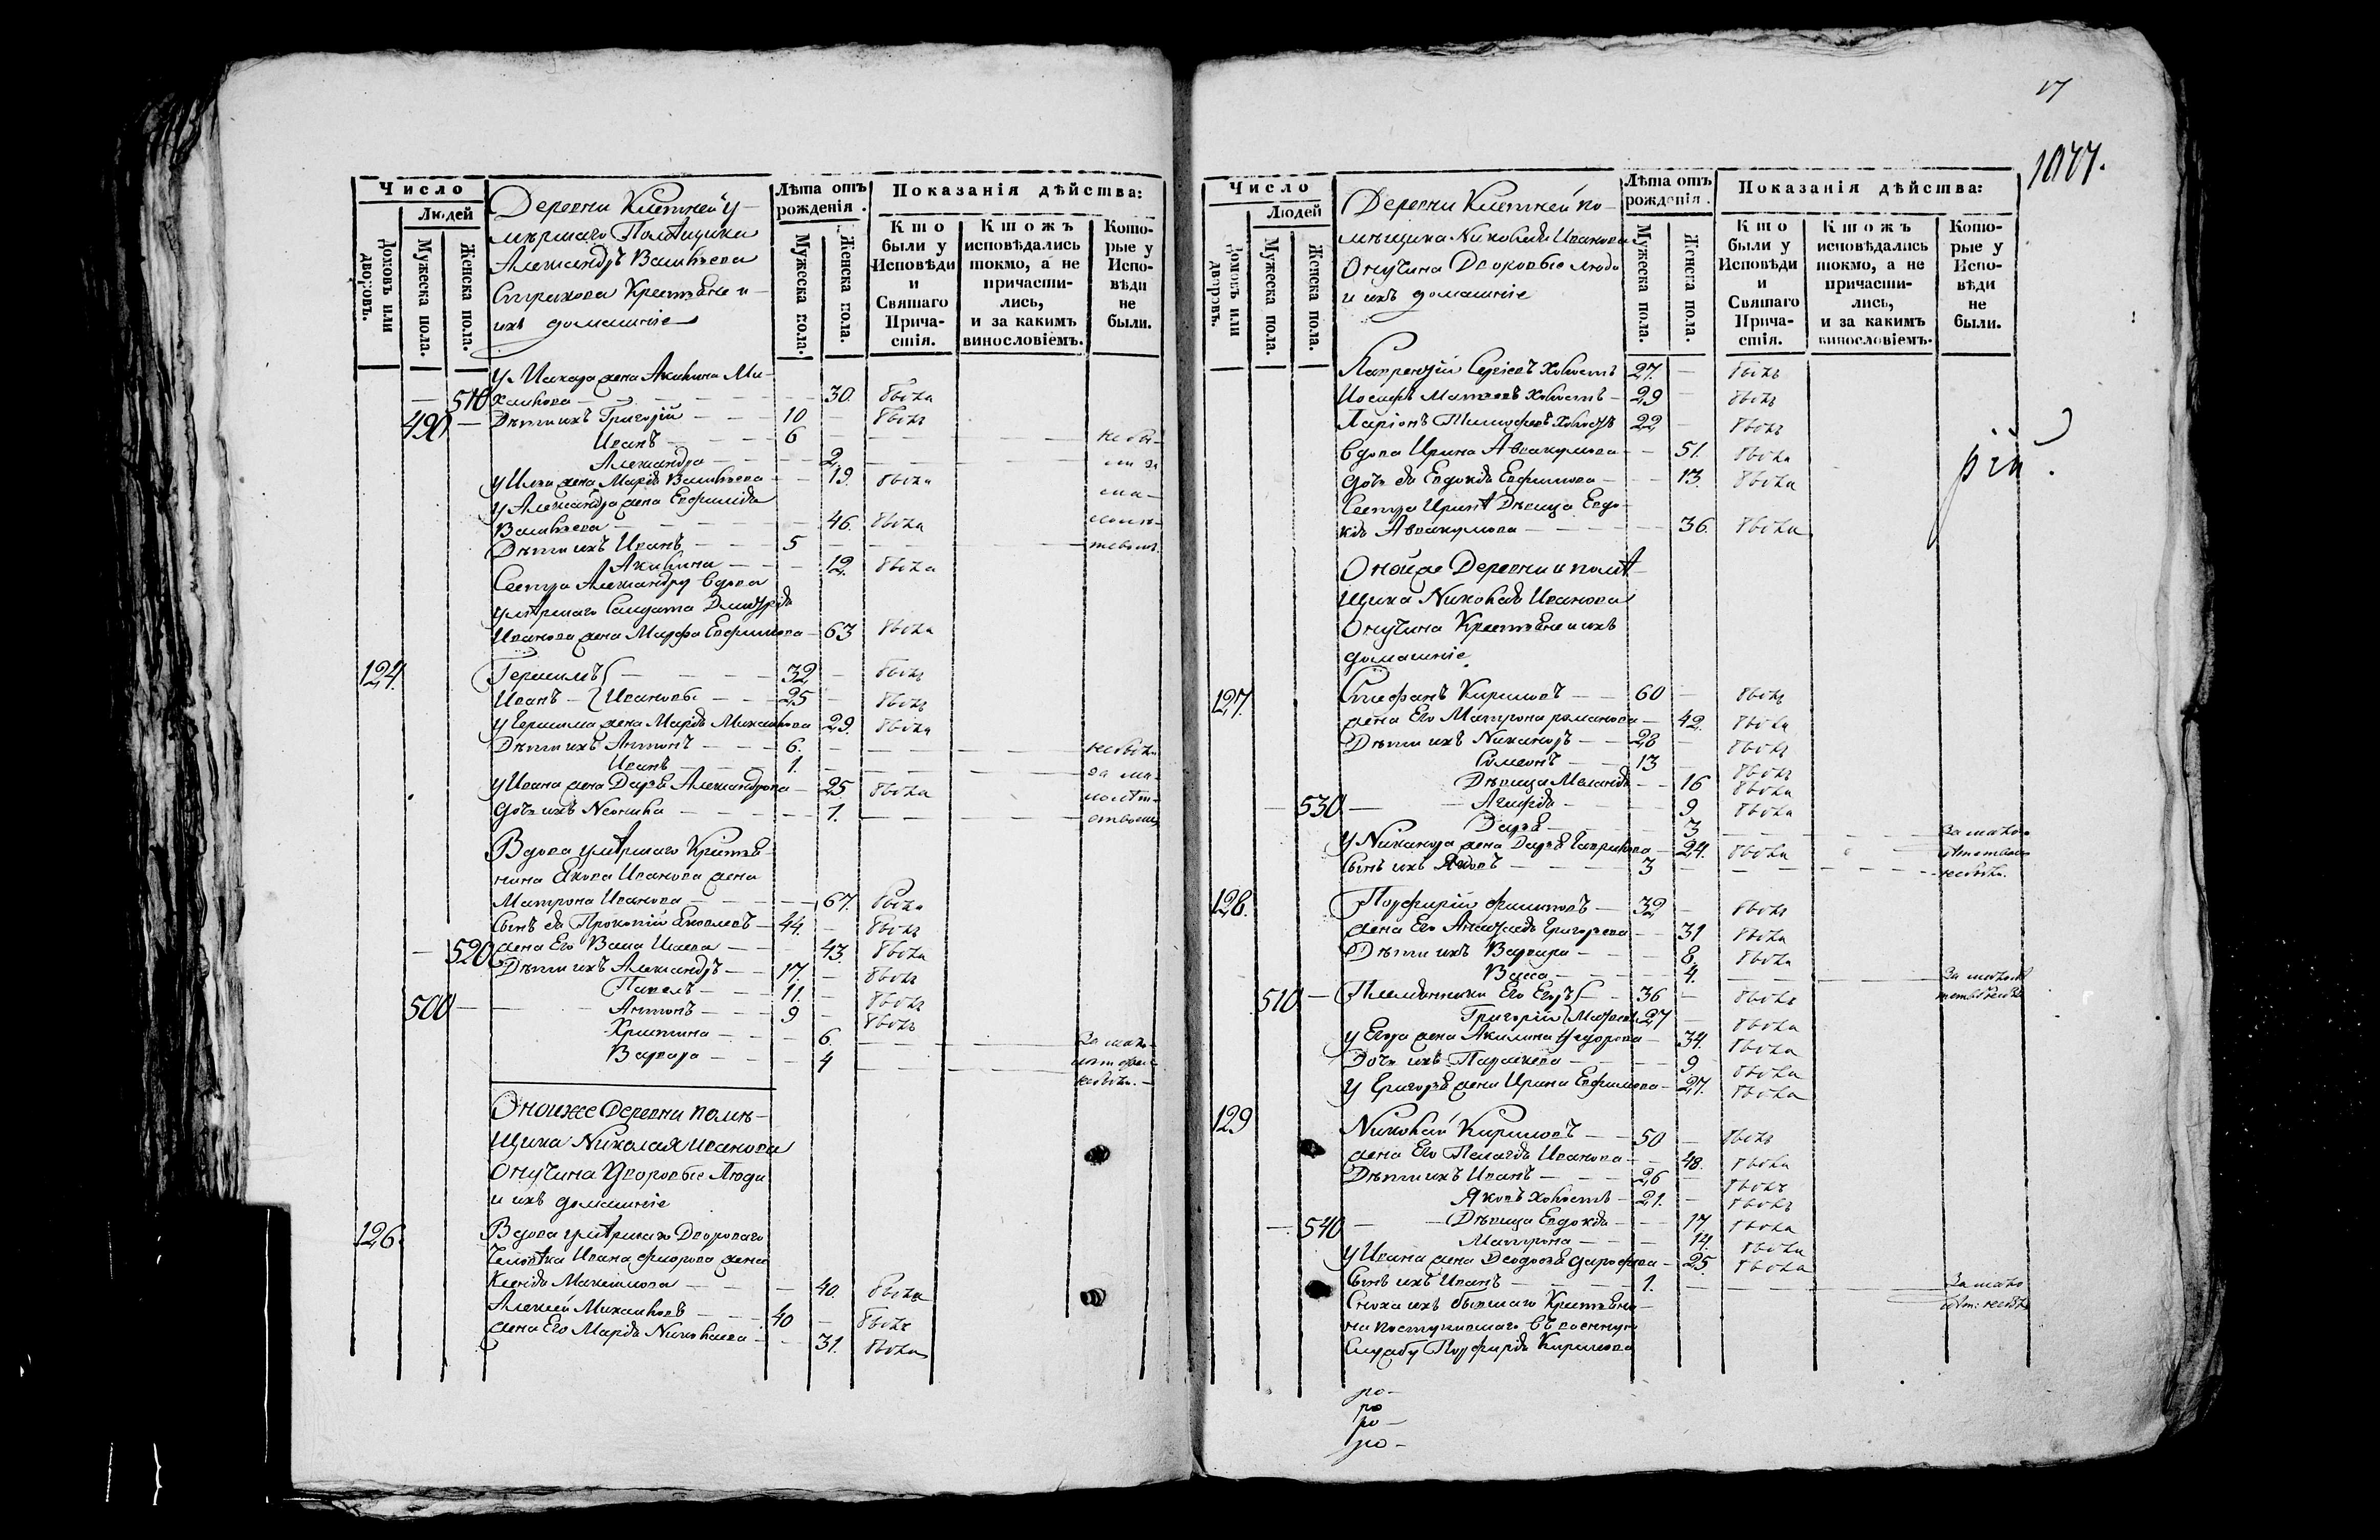 Число
Людей
Домовъ или дворовъ.
Мужеска пола.
Женска пола.
Деревни Клетней у-
мѣршаго Помѣщика
Александръ Васильева
Стрехова Крестьяне и
ихъ домашніе
Лѣта отъ рожденія.
Мужеска пола.
Женска пола.
Показанія дѣйства:
Кто были у Исповѣди и Святаго Прича-стія.
Ктожъ исповѣдались токмо, а не причасти-лись, и за какимъ винословіемъ.
Кото-рые у Испо-вѣди не были.
у Макара жена Акилина Ми-
— 510 хаилова — — 30. была
490 — Дѣти ихъ Григорій — 10 — былъ
Иванъ — 6 — не бы-
Александра — — 2. — ли за
у Ильи жена Марія Васильева — 19. была ма-
у Александра жена Евфимія
Васильева — — 46. была
Дѣти ихъ Иванъ — 5 —
Акилина — — 12. была
Сестра Александру вдова
умѣршаго Салдата Дмитрія
Иванова жена Марфа Евфимова — 63 была
124. Герасимъ — 32 — былъ
Иванъ — Ивановы — 25 — былъ
у Герасима жена Марія Михаилова 29. была
Дѣти ихъ Антонъ — 6. — не были
Иванъ — 1. — за ма-
у Ивана жена Дарья Александрова — 25 была
дочь ихъ Неонила — — 1. —
Вдова умѣршаго Крестья-
нина Якова Иванова жена
Матрона Иванова — — 67. была
Сынъ ея Прокопій Яковлевъ — 44. — былъ
— 520 жена Его Васа Исаева — — 43. была
Дѣти ихъ Александръ — 17. — былъ
Павелъ — 11. — былъ
500 — Антонъ — 9 — былъ
Христина — — 6. — За мало-
Варвара — — 4 —
не были. —
Оной же Деревни помѣ-
щика Николая Иванова
Онучина Дворовые Люди
и ихъ домашніе
126. Вдова умѣршаго Двороваго
Человѣка Ивана Фиорова жена
Ксенія Максимова — — 40. была
Алексѣй Михаиловъ — 40 — былъ
жена Его Марія Николаева — — 31. была
17
1077.
Число
Людей
Домовъ или дворовъ.
Мужеска пола.
Женска пола.
Деревни Клетней по-
мѣщика Николая Иванова
Онучина Дворовые люди
и ихъ домашніе
Лѣта отъ рожденія.
Мужеска пола.
Женска пола.
Показанія дѣйства:
Кто были у Исповѣди и Святаго Прича-стія.
Ктожъ исповѣдались токмо, а не причасти-лись, и за какимъ винословіемъ.
Кото-рые у Испо-вѣди не были.
Лаврентій Сергіевъ Холостъ 27. — былъ
Иосифъ Матвѣевъ Холостъ — 29 — былъ
Ларіонъ Тимофеевъ Холостъ 22 — былъ
вдова Ирина Аввакумова — 51. была
дочь ея Евдокія Евфимова — 13. была
рій.
Сестра Иринѣ Дѣвица Евдо-
кія Аввакумова — — 36. была
Оной же Деревни и помѣ-
щика Николая Иванова
Онучина Крестьяне и ихъ
домашніе
127. Стефанъ Кириловъ — 60 — былъ
жена Его Матрона романова — 42. была
Дѣти ихъ Никаноръ — 28 — былъ
Симеонъ — 13 — былъ
Дѣвица Меланія — — 16 была
— 530 — Агафія — — 9 была
Дарья — — 3 — За мало-
у Никанора жена Дарья Гаврилова — 24. была
Сынъ ихъ Яковъ — 3 — не были.
128. Порфирій Филиповъ — 32 — былъ
жена Его Анастасія Григорьева — 31 была
Дѣти ихъ Варвара — — 8 была
Васса — — 4. — За мало
510 — Племянники Его Егоръ — 36 — былъ
Григорій Матвѣевы 27 —
у Егора жена Акилина Федорова — 34. была
Дочь ихъ Параскева — — 9 была
у Григорья жена Ирина Евфимова — 27. была
129 Николай Кириловъ — 50 — былъ
жена Его Пелагія Иванова — 48. была
Дѣти ихъ Иванъ — 26 — былъ
Яковъ холостъ — 21. — былъ
— 540 — Дѣвица Евдокія — — 17. была
Матрона — — 14. была
у Ивана жена Феодосья Дорофеева — 25. была
Сынъ ихъ Иванъ — 1. — За мало
Сноха ихъ бывшаго Крестьяни-
на поступившаго въ военную
Службу Порфирія Кирилова
ро-
ро
ро-
ро-